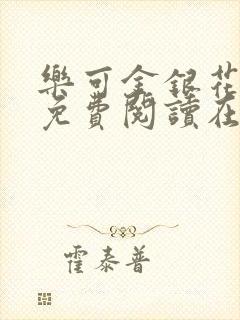 樂可金銀花
免費閱讀在
霍泰普